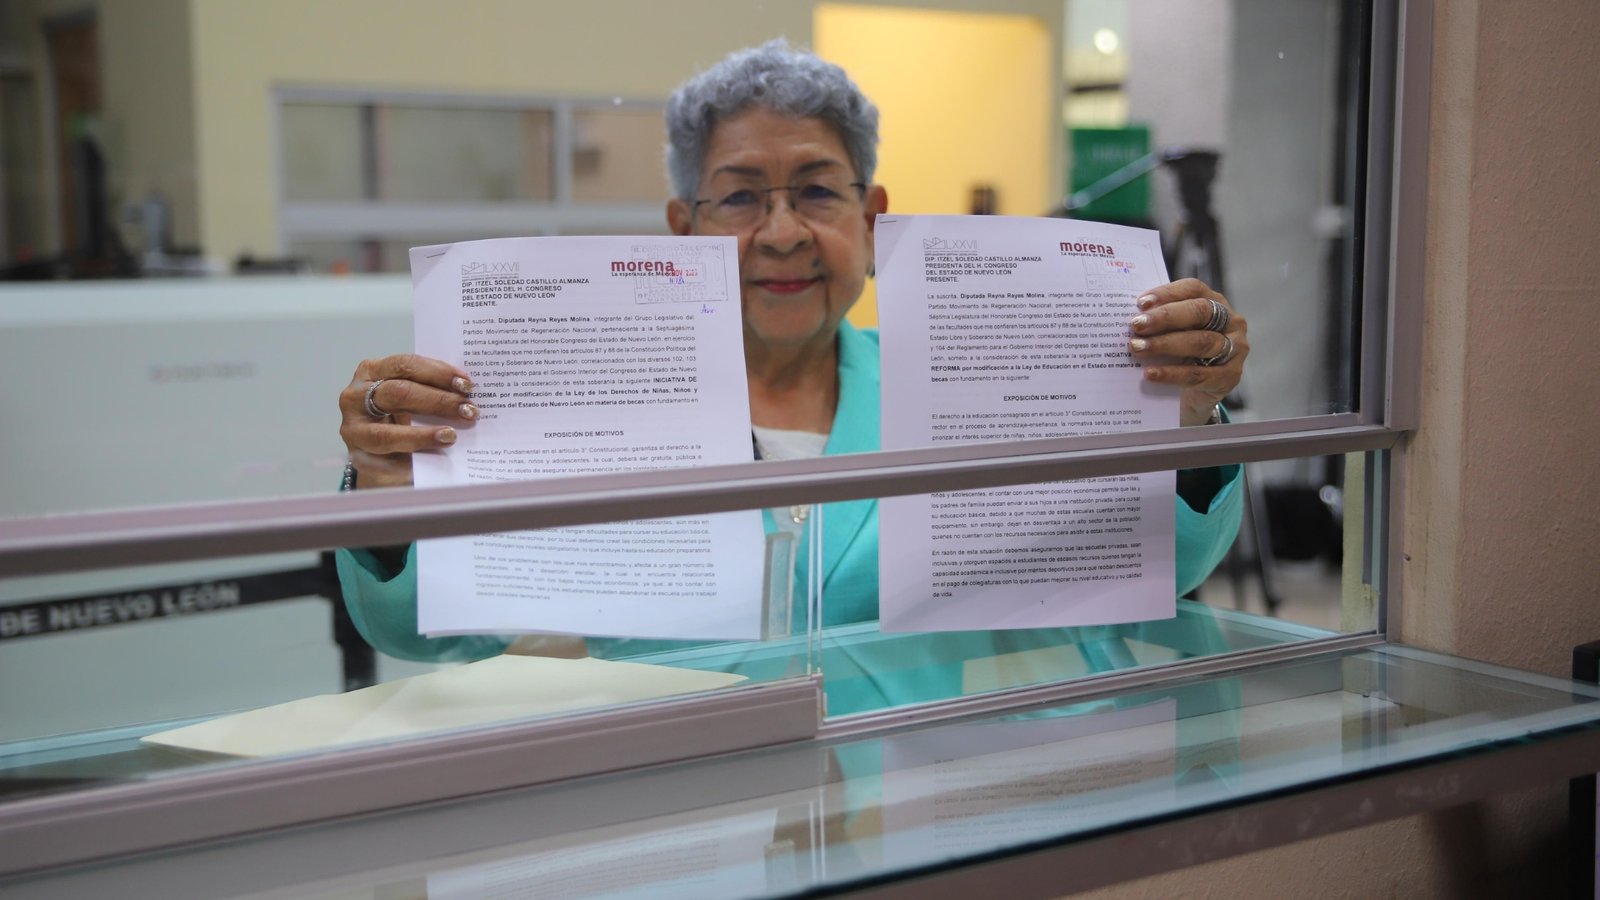 LXXVII
morena
La esperanza de México
NOV 2023
DIP. ITZEL SOLEDAD CASTILLO ALMANZA
PRESIDENTA DEL H. CONGRESO
DEL ESTADO DE NUEVO LEÓN
PRESENTE.
La suscrita, Diputada Reyna Reyes Molina, integrante del Grupo Legislativo del
Partido Movimiento de Regeneración Nacional, perteneciente a la Septuagésima
Séptima Legislatura del Honorable Congreso del Estado de Nuevo León, en ejercicio
de las facultades que me confieren los artículos 87 y 88 de la Constitución Política del
Estado Libre y Soberano de Nuevo León, correlacionados con los diversos 102, 103
104 del Reglamento para el Gobierno Interior del Congreso del Estado de Nuevo
León, someto a la consideración de esta soberanía la siguiente INICIATIVA DE
REFORMA por modificación de la Ley de los Derechos de Niñas, Niños y
dolescentes del Estado de Nuevo León en materia de becas con fundamento en
siguiente:
EXPOSICIÓN DE MOTIVOS
Nuestra Ley Fundamental en el artículo 3° Constitucional, garantiza el derecho a la
educación de niñas, niños y adolescentes, la cual, deberá ser gratuita, pública
inclusiva, con el objeto de asegurar su permanencia en los
niños y adolescentes, aún más en
y tengan dificultades para cursar su educación básica,
sus derechos, por lo cual debemos crear las condiciones necesarias para
que concluyan los niveles obligatorios, lo que incluye hasta su educación preparatoria.
Uno de los problemas con los que nos encontramos y afecta a un gran número de
estudiantes es la deserción escolar, la cual se encuentra relacionada
fundamentalmente, con los bajos recursos económicos, ya que, al no contar con
ingresos suficientes, las y los estudiantes pueden abandonar la escuela para trabajar
desde edades tempranas.
LXXVII
morena
La esperanza de México
NOV 2023
DIP. ITZEL SOLEDAD CASTILLO ALMANZA
PRESIDENTA DEL H. CONGRESO
DEL ESTADO DE NUEVO LEÓN
PRESENTE.
La suscrita, Diputada Reyna Reyes Molina, integrante del Grupo Legislativo del
Partido Movimiento de Regeneración Nacional, perteneciente a la Septuagésima
Séptima Legislatura del Honorable Congreso del Estado de Nuevo León, en ejercicio
de las facultades que me confieren los artículos 87 y 88 de la Constitución Política del
Estado Libre y Soberano de Nuevo León, correlacionados con los diversos 102, 103
y 104 del Reglamento para el Gobierno Interior del Congreso del Estado de Nuevo
León, someto a la consideración de esta soberanía la siguiente INICIATIVA DE
REFORMA por modificación a la Ley de Educación en el Estado en materia de
becas con fundamento en la siguiente:
EXPOSICIÓN DE MOTIVOS
El derecho a la educación consagrado en el artículo 3° Constitucional, es un principio
rector en el proceso de aprendizaje-enseñanza, la normativa señala que se debe
priorizar el interés superior de niñas, niños, adolescentes y jóvenes,
educativo que cursarán las niñas,
niños y adolescentes, el contar con una mejor posición económica permite que las y
los padres de familia puedan enviar a sus hijos a una institución privada, para cursar
su educación básica, debido a que muchas de estas escuelas cuentan con mayor
equipamiento, sin embargo, dejan en desventaja a un alto sector de la población
quienes no cuentan con los recursos necesarios para asistir a estas instituciones.
En razón de esta situación debemos asegurarnos que las escuelas privadas, sean
inclusivas y otorguen espacios a estudiantes de escasos recursos quienes tengan la
capacidad académica e inclusive por méritos deportivos para que reciban descuentos
en el pago de colegiaturas con lo que puedan mejorar su nivel educativo y su calidad
de vida.
DE NUEVO LEÓN